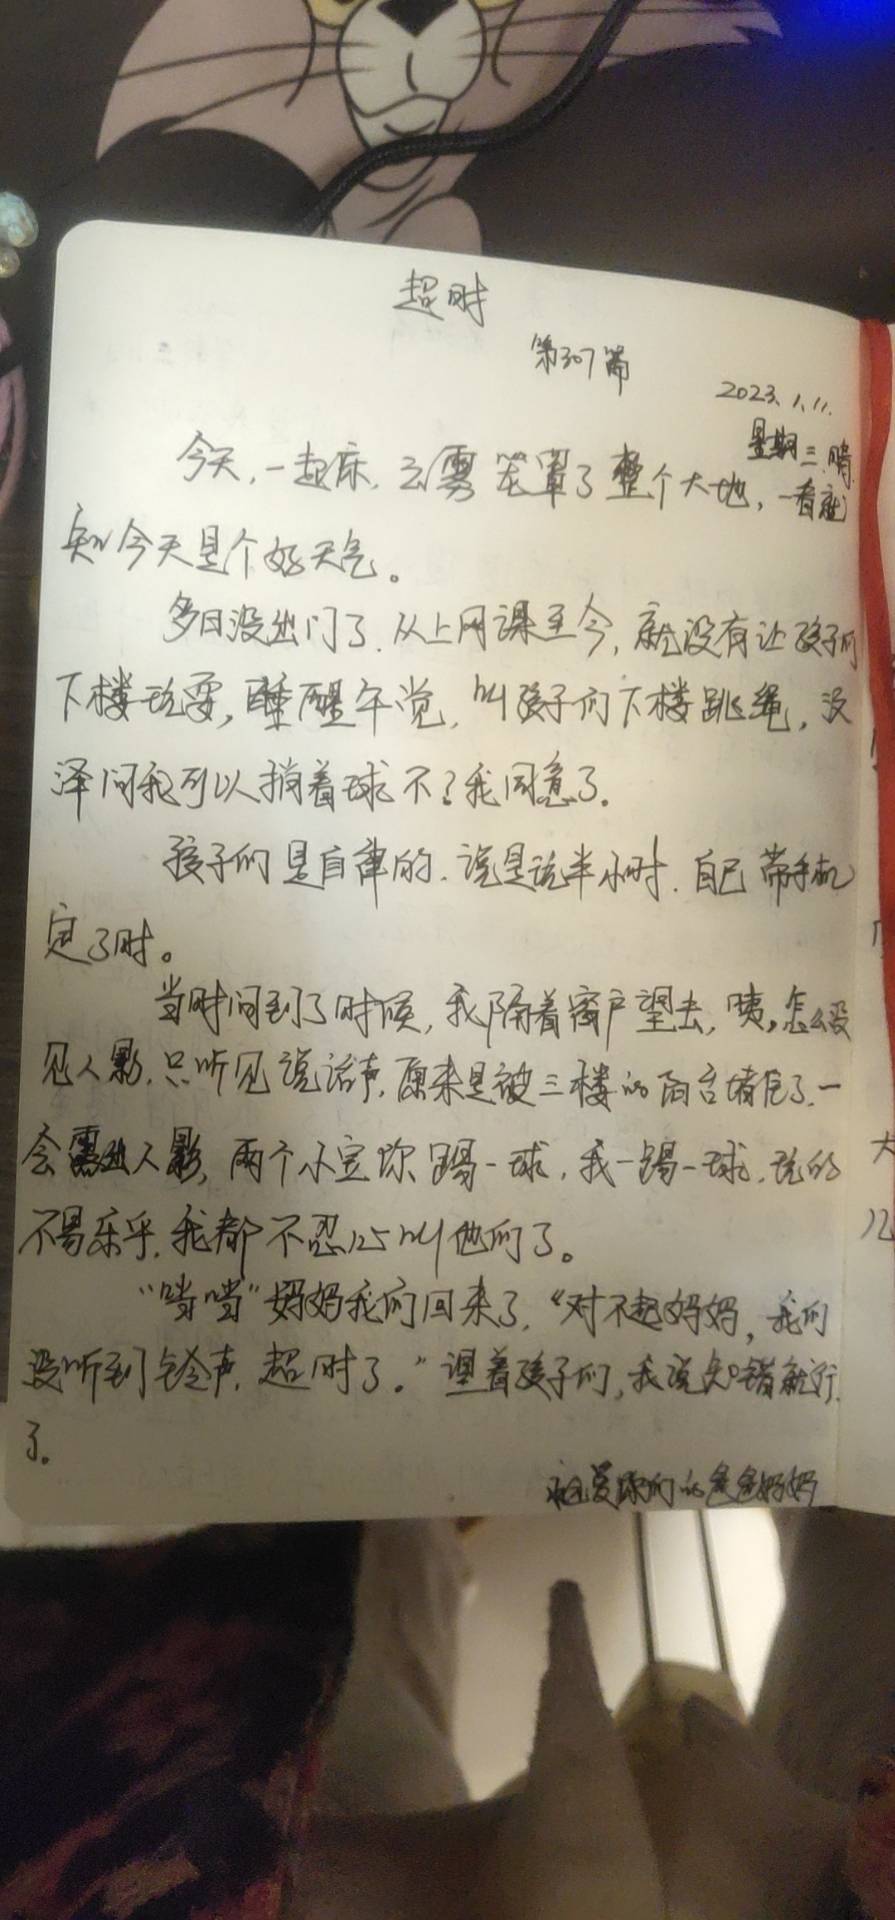 超时
第307篇
2023.1.11.
星期三.晴
今天,一起床,云雾笼罩了整个大地,一看就
知今天是个好天气。
多日没出门了.从上网课至今,就没有让孩子们
下楼玩耍,睡醒午觉,叫孩子们下楼跳绳,汶
泽问我可以捎着球不?我同意了。
孩子们是自律的.说是说半小时.自己带手机
定了时。
当时间到了时候,我隔着窗户望去,咦,怎么没
见人影.只听见说话声.原来是被三楼的雨台堵住了.一
会露出人影,两个小宝你踢一球,我一踢一球.玩的
不易乐乎.我都不忍心叫他们了。
“当当”妈妈我们回来了.“对不起妈妈,我们
没听到铃声.超时了。”望着孩子们,我说知错就行
了。
永远爱你们的爸爸妈妈